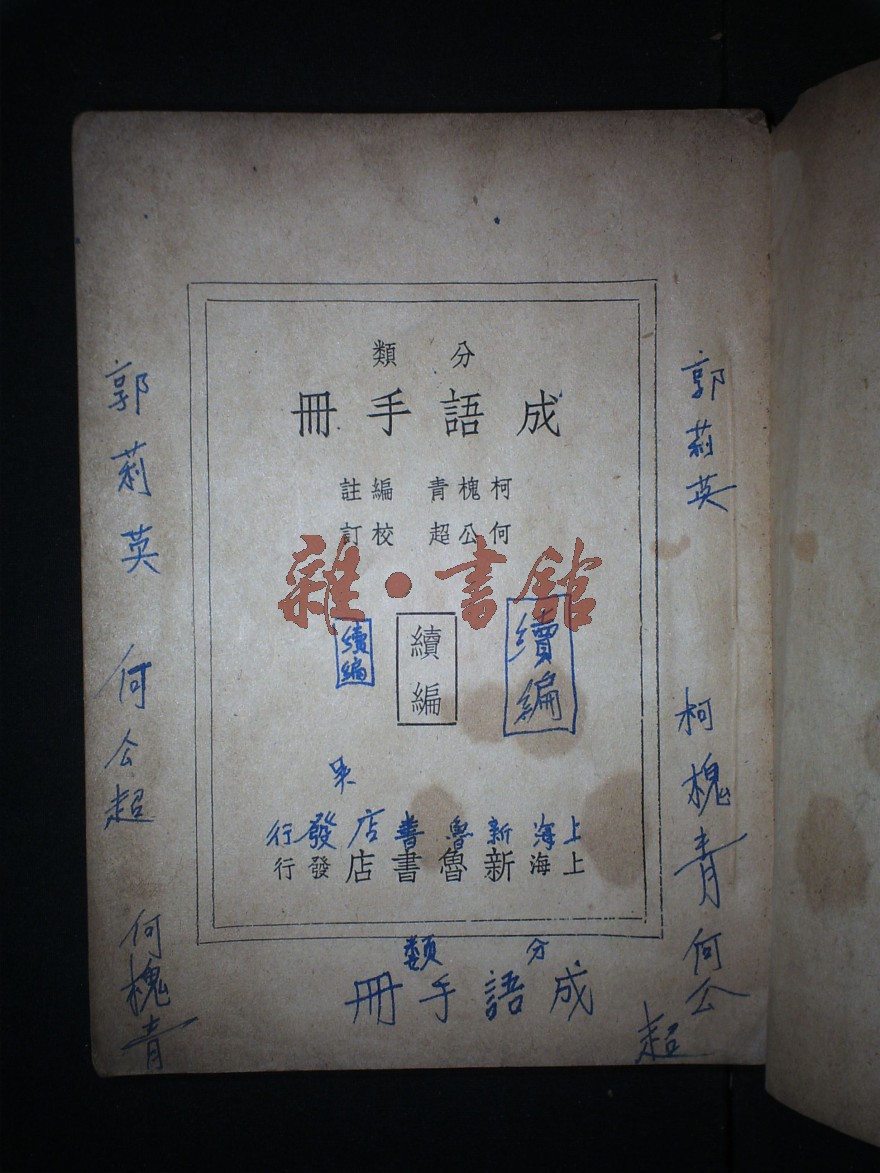 類分
冊手語成
註編 青槐柯
訂校 超公何
雜·書館
續編
續編
續編
行發店書魯新海上
行發店書魯新海上
類分
冊手語成
郭莉英
柯槐青
何公超
郭莉英
何公超
何槐青